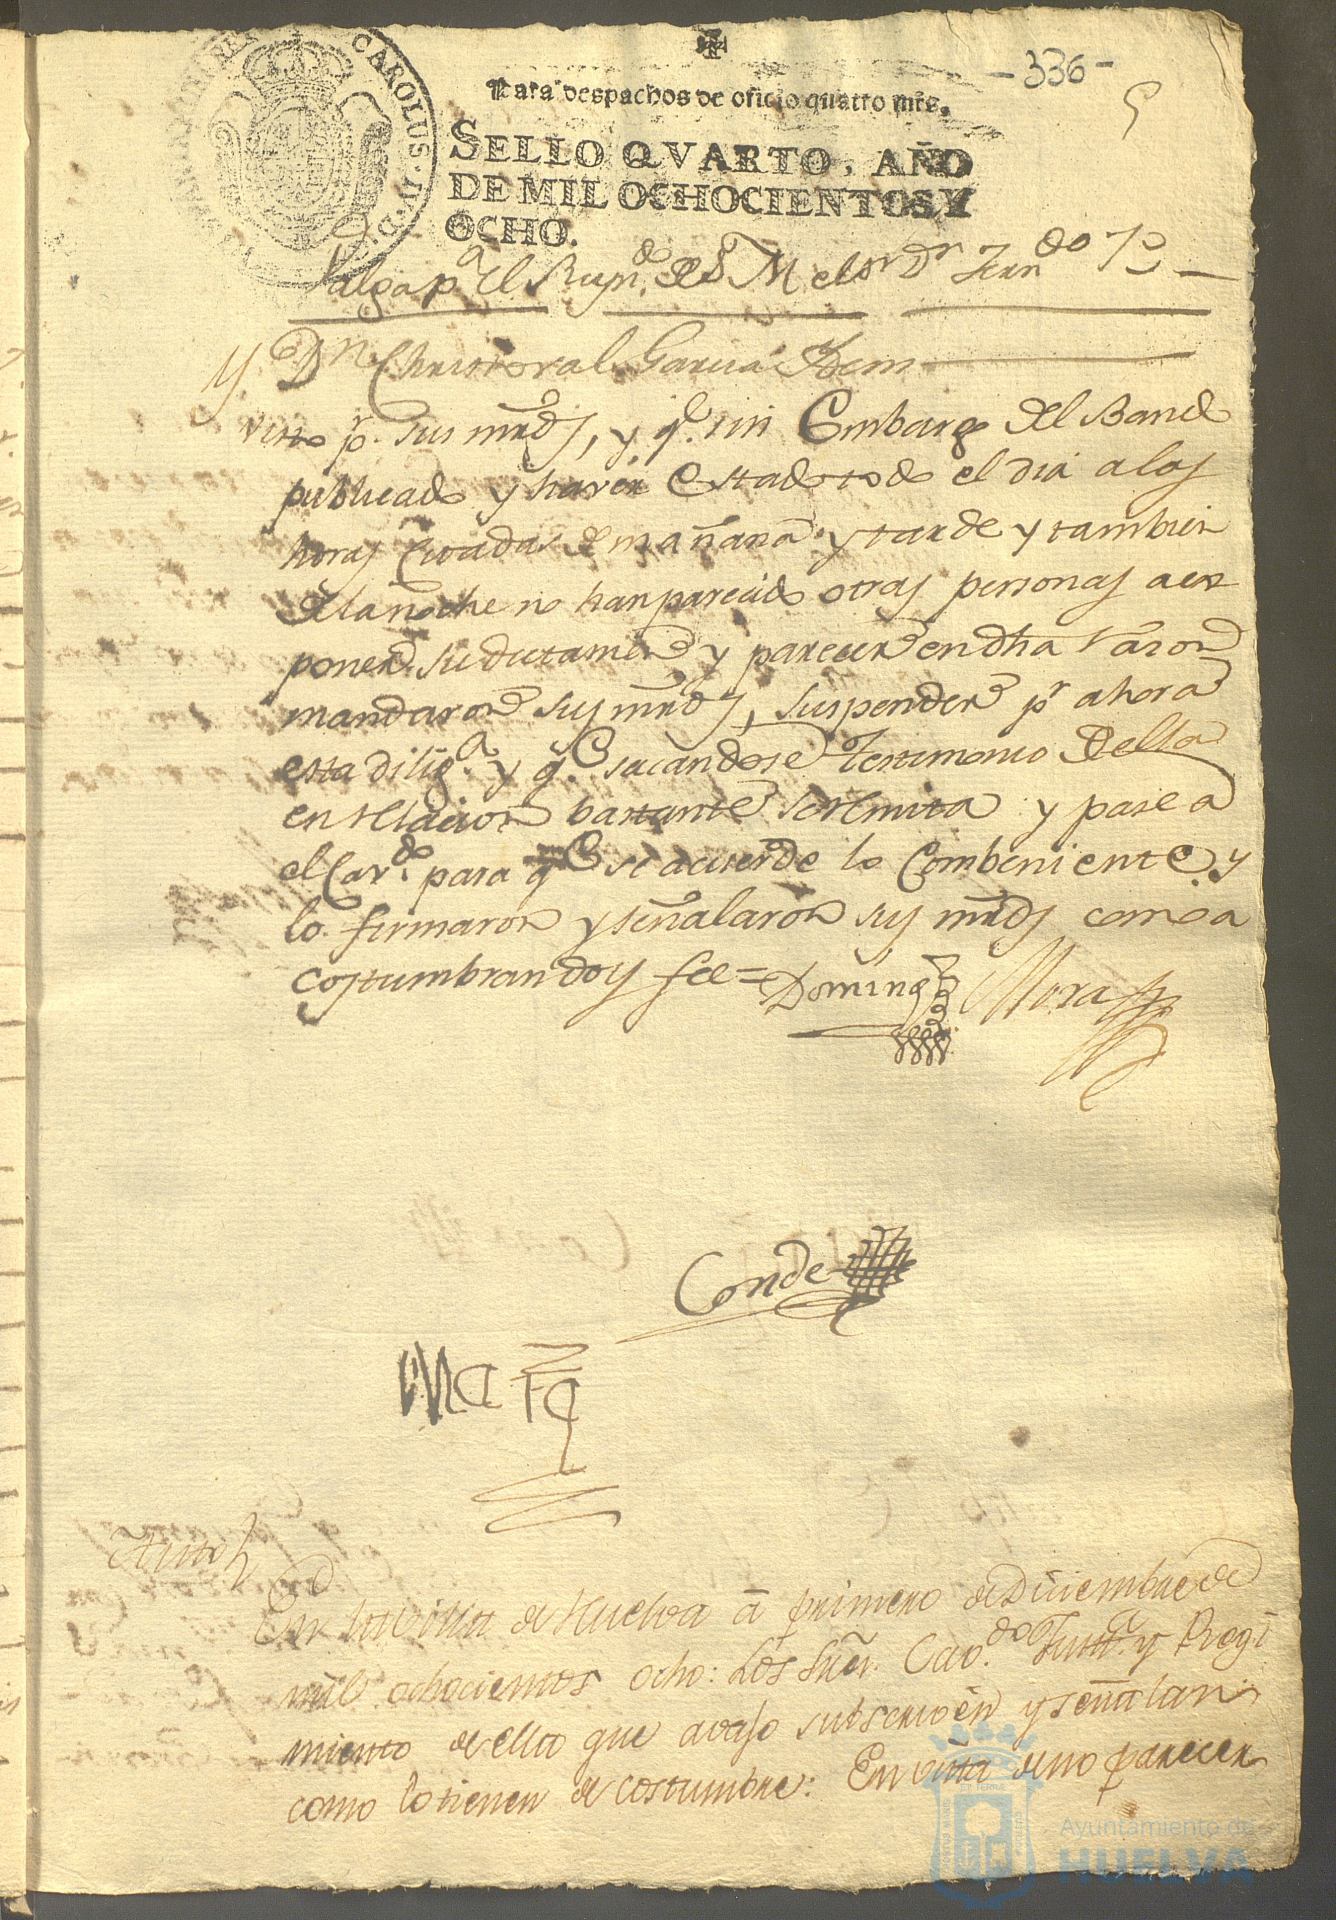 -336-
5
CAROLUS IV D. G.
Para despachos de oficio quatro mrs.
SELLO QVARTO, AÑO
DE MIL OCHOCIENTOS Y
OCHO.
Valga pa. el Reyndo. de S M el Sr Dn Ferndo 7º
y Dn Christoval Garcia Idem
Visto pr. sus mrds, y qe. sin Embargo del Bando
publicado y haver Estado todo el dia a las
horas Citadas de mañana y tarde y tambien
de la noche no han parecido otras personas a ex
poner su dictamen y parecer en dha razon
mandaron sus mrds, suspender pr ahora
esta diliga. y qe. sacandose Testimonio de ella
en relacion bastante se remita y pase a
el Cavdo. para qe se acuerde lo Combeniente, y
lo firmaron y señalaron sus mrds como a
costumbran doy fee = Doming Mora
Conde
Auto
En la villa de Huelva à primero de Diciembre de
mil ochocientos ocho: Los Señr. Cavdo. Justta. y Regi
miento de ella que avajo subscriven y señalan
como lo tienen de costumbre: En vista de no parecer
Ayuntamiento de
HUELVA